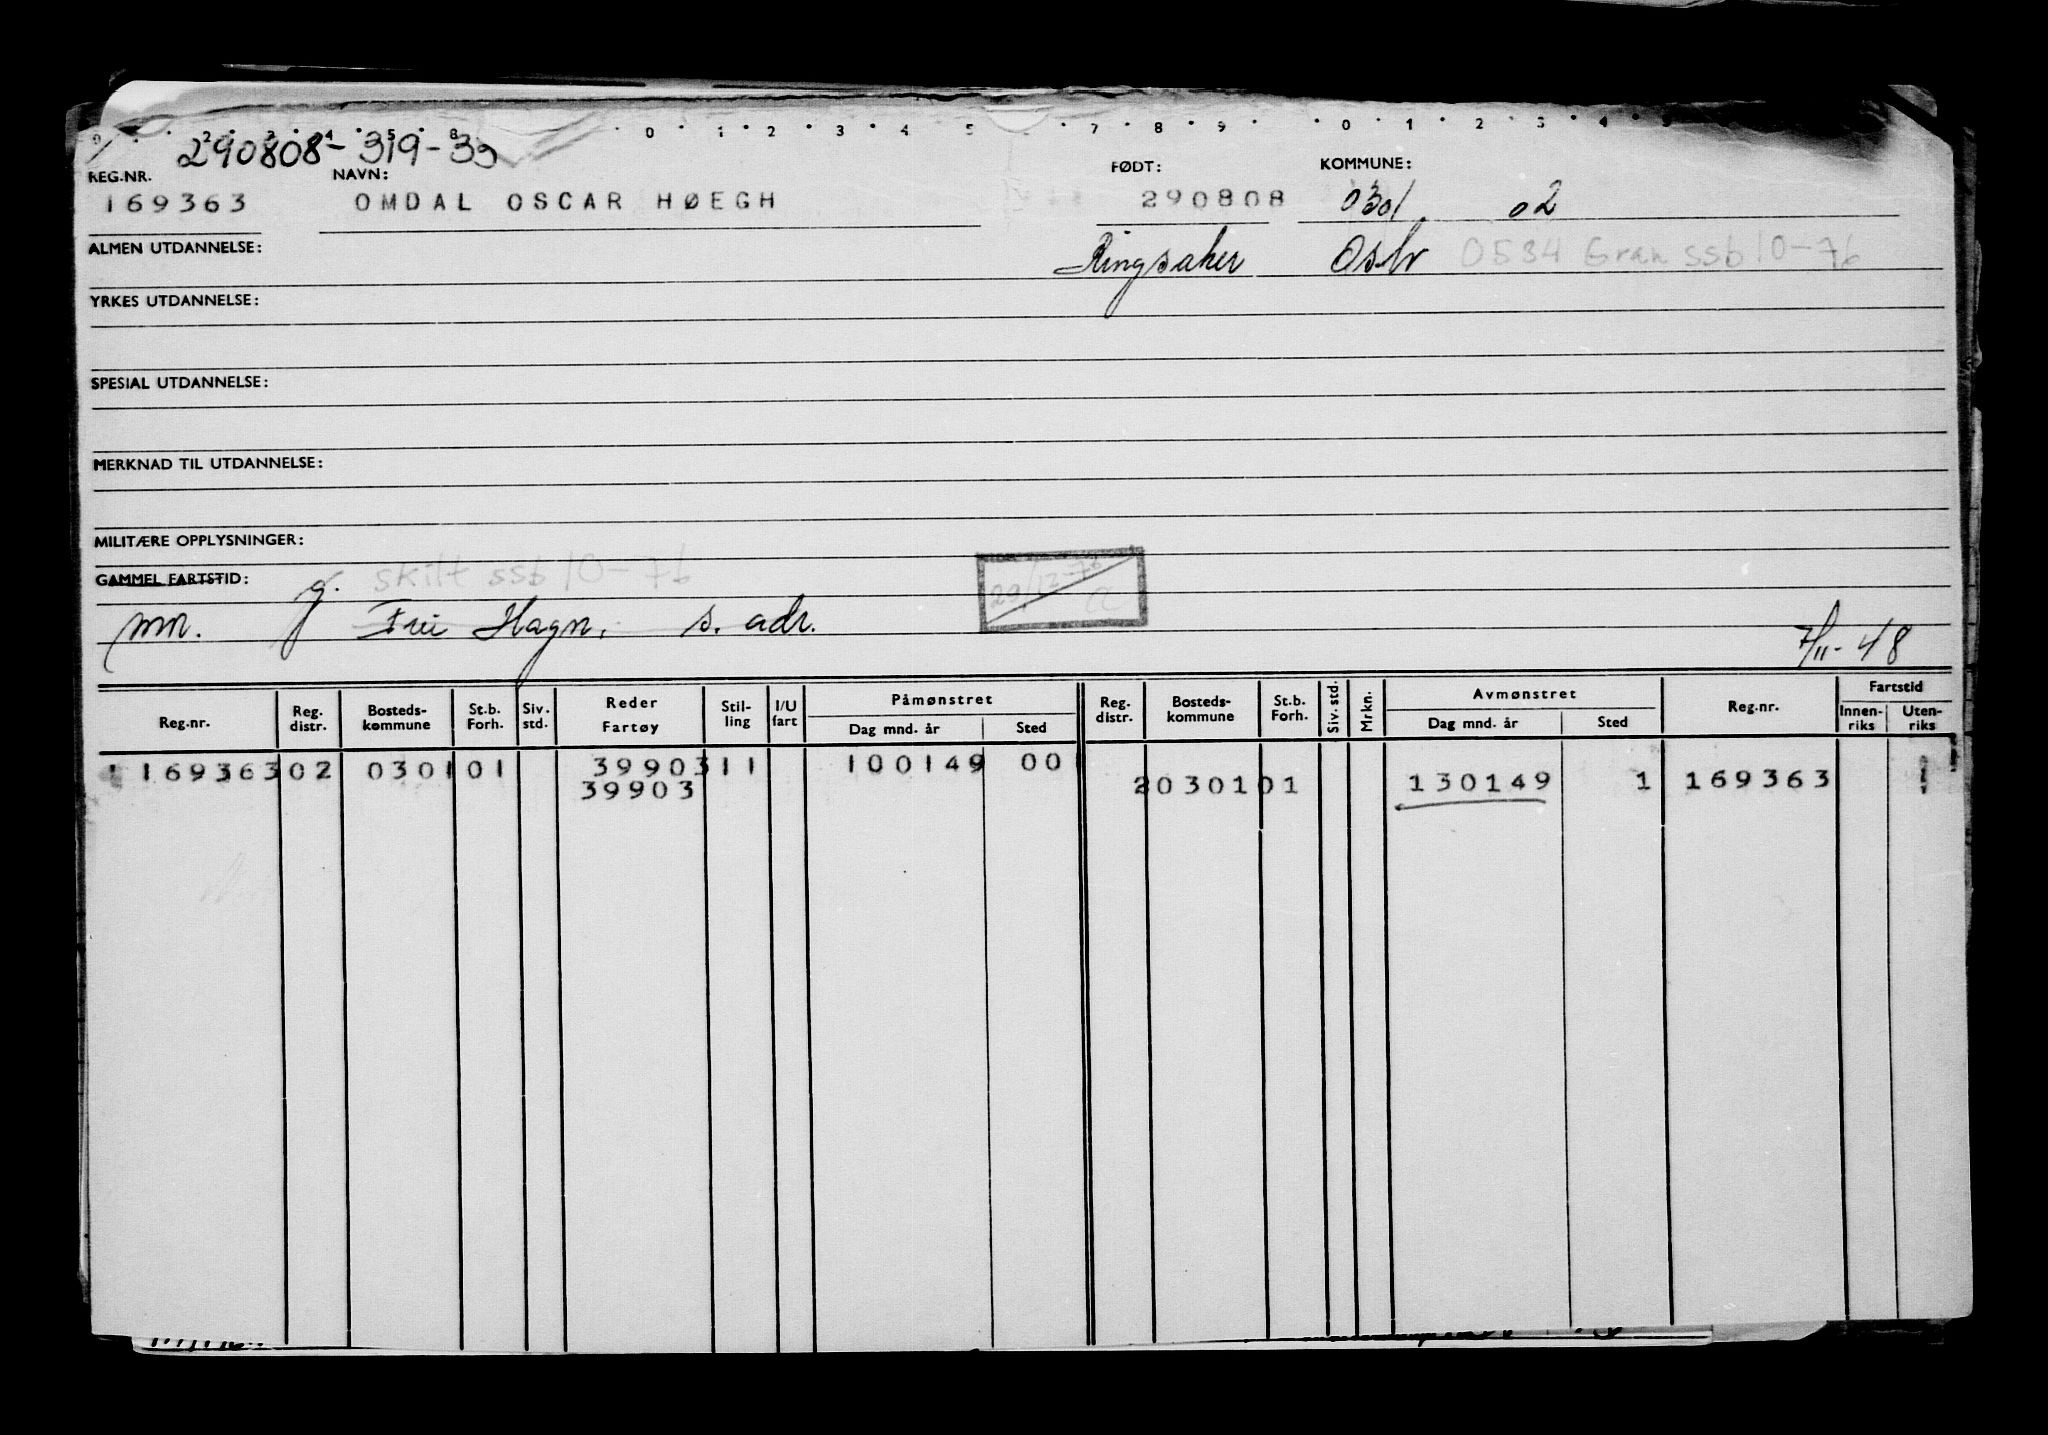 290808-319-33
REG.NR. NAVN: FØDT: KOMMUNE:
169363 OMDAL OSCAR HØEGH 290808 0301 02
ALMEN UTDANNELSE: Ringsaker Oslo 0534 Gran ssb 10-76
YRKES UTDANNELSE:
SPESIAL UTDANNELSE:
MERKNAD TIL UTDANNELSE:
MILITÆRE OPPLYSNINGER:
GAMMEL FARTSTID: g. skilt ssb 10-76 29/12-76
mn. Frei Hagn, s. adr. 7/11-48
Reg.nr. Reg. distr. Bosteds-kommune St.b. Forh. Siv. std. Reder Fartøy Stil-ling I/U fart Påmønstret Dag mnd. år Sted Reg. distr. Bosteds-kommune St.b. Forh. Siv. std. Mrkn. Avmønstret Dag mnd. år Sted Reg.nr. Fartstid Innen-riks Uten-riks
169363 02 0301 01 39903 11 100149 00
39903 2 0301 01 130149 1 169363